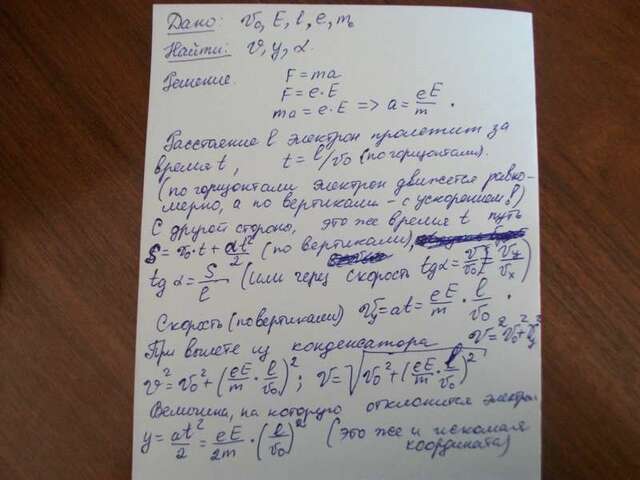 Дано: v₀, E, l, e, m.
Найти: v, y, α.
Решение. F = ma
F = e·E
ma = e·E => a = eE/m .
Расстояние l электрон пролетит за
время t, t = l/v₀ (по горизонтали).
(по горизонтали электрон движется равно-
мерно, а по вертикали - с ускорением!)
С другой стороны, это же время t путь
S = v₀·t + at²/2 (по вертикали),
tg α = S/l (или через скорость tg α = v/v₀ = vy/vx)
Скорость (по вертикали) vy = at = eE/m · l/v₀ .
При вылете из конденсатора v² = v₀² + vy²
v² = v₀² + (eE/m · l/v₀)²; v = √(v₀² + (eE/m · l/v₀)²)
Величина, на которую отклонится электрон
y = at²/2 = eE/2m · (l/v₀)² (это же и искомая
координата)